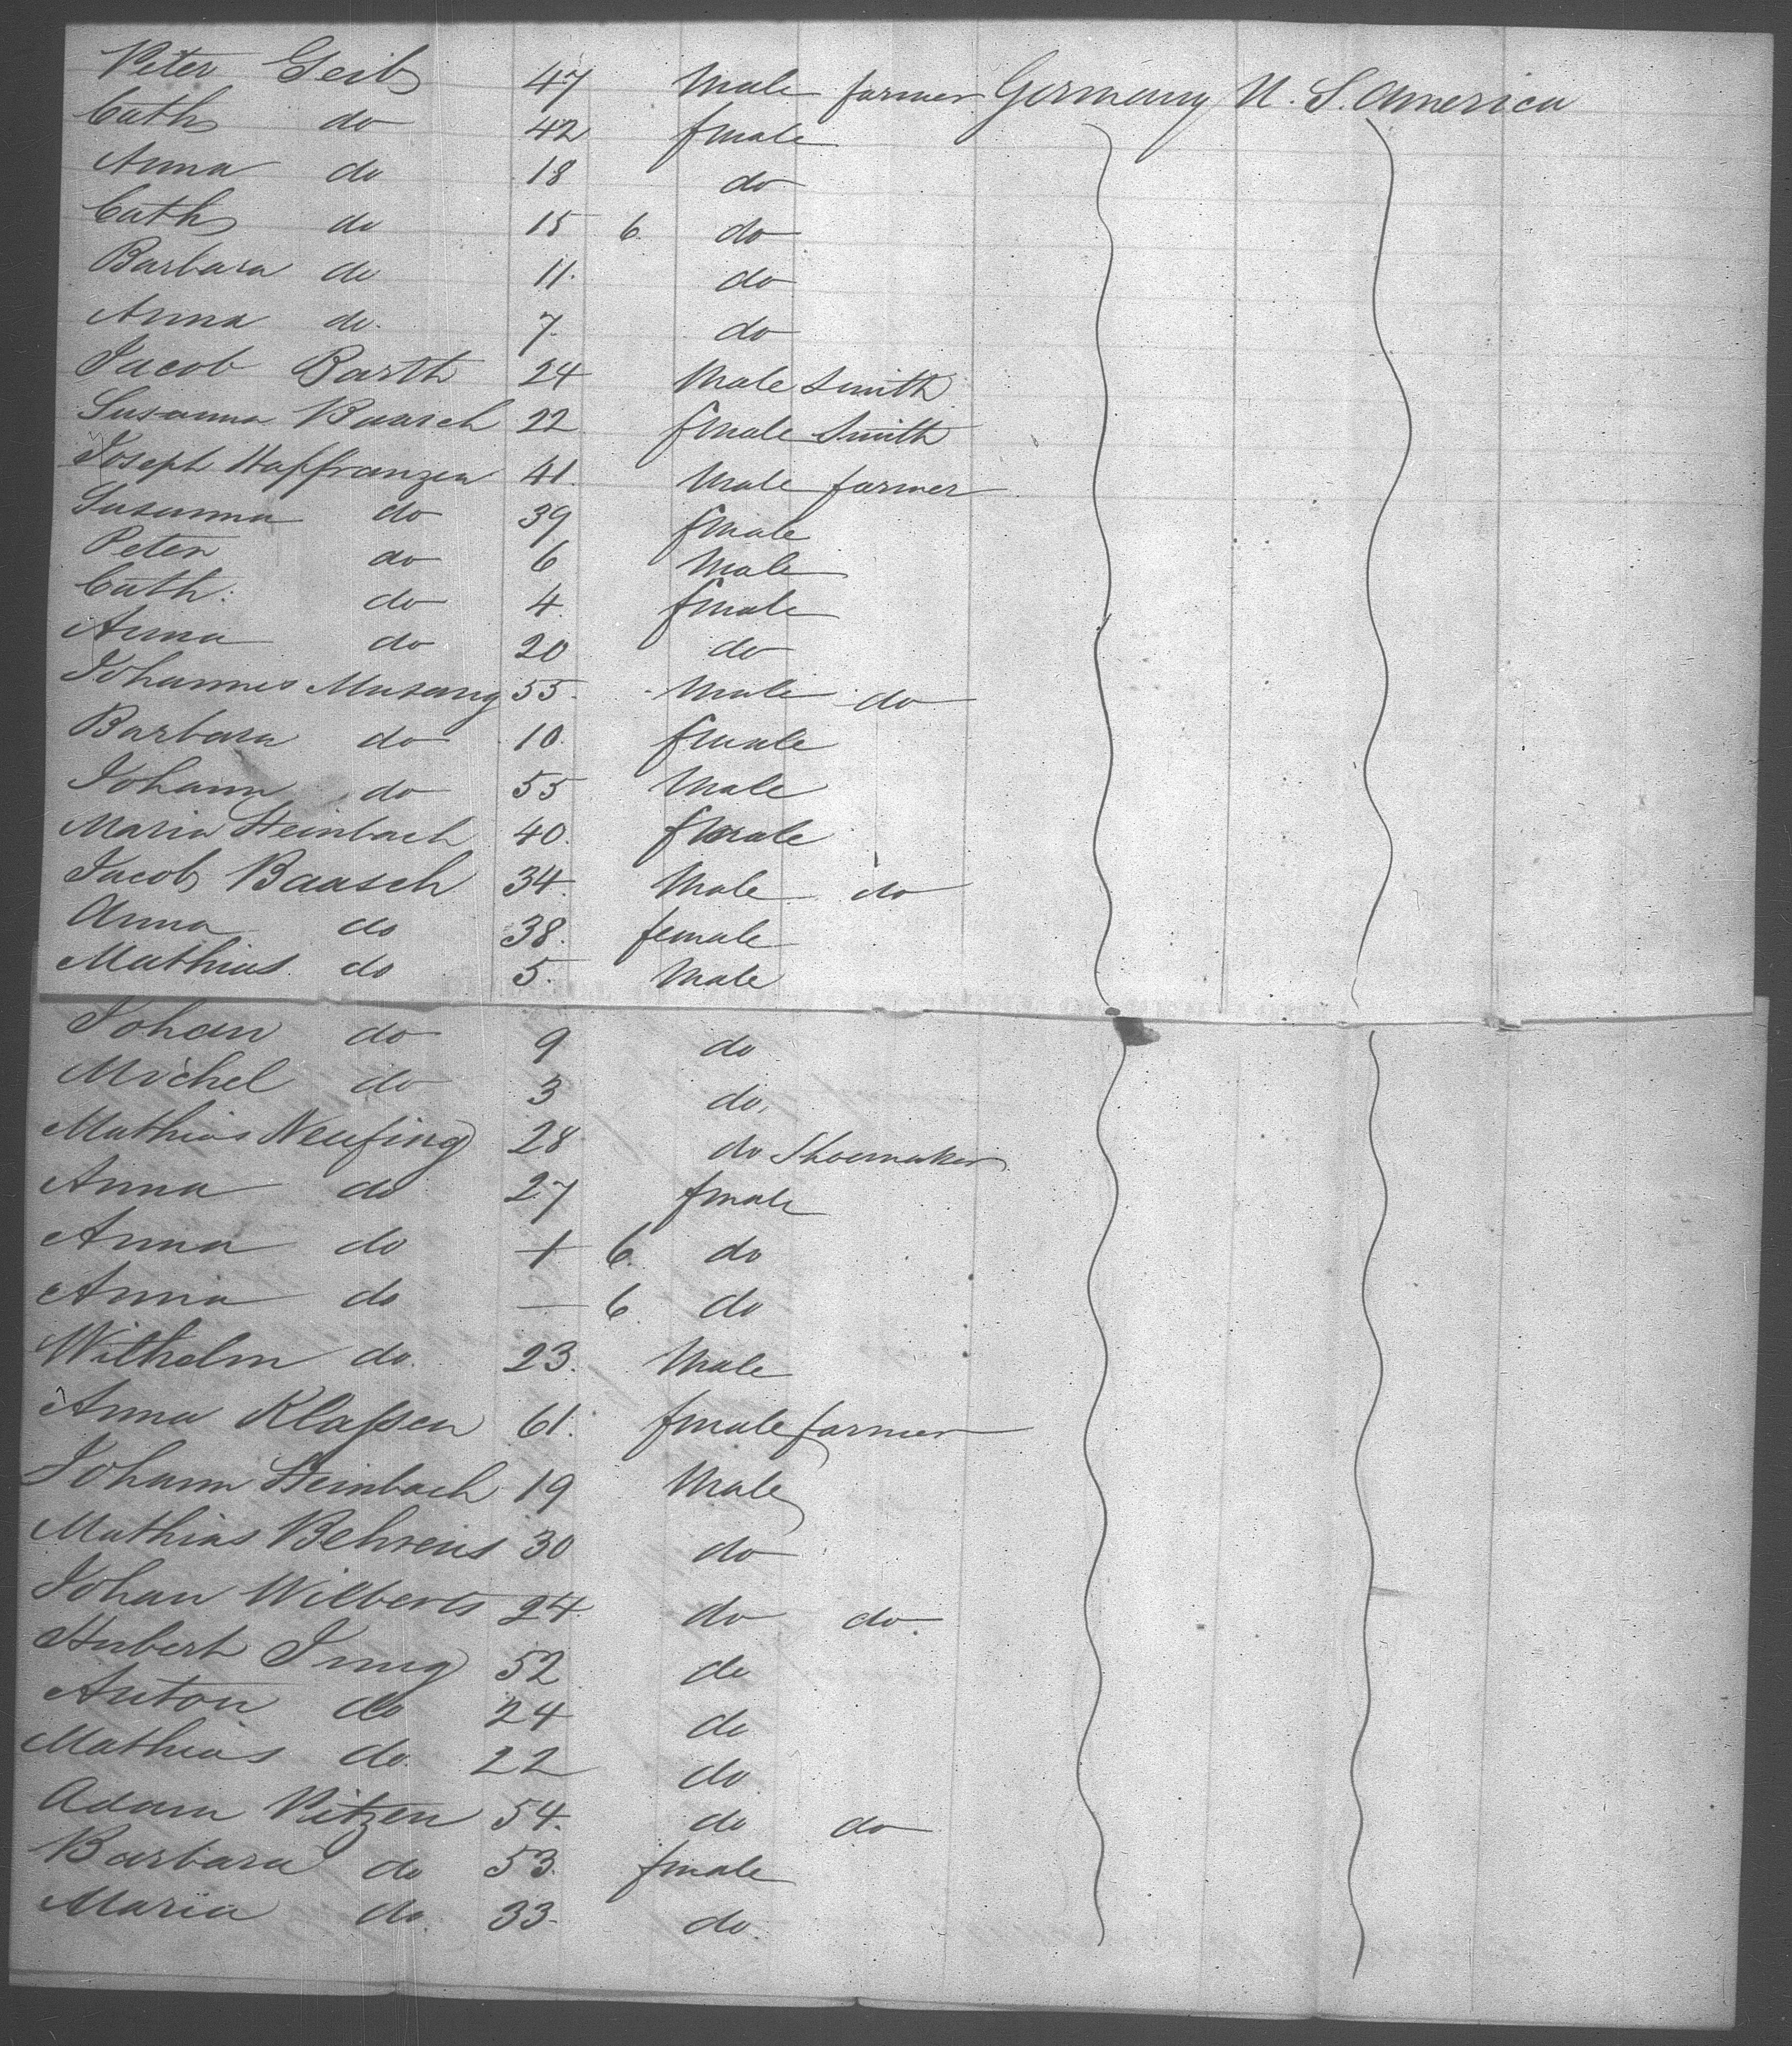 Peter Geib 47 Male farmer Germany U. S. America
Cath do 42 fmale
Anna do 18 do
Cath do 15 6 do
Barbara do 11. do
Anna do. 7. do
Jacob Barth 24 Male Smith
Susanna Baasch 22 fmale Smith
Joseph Haffranzen 41. Male farmer
Susanna do 39 fmale
Peter do 6 Male
Cath: do 4. fmale
Anna do 20 do
Johannes Musang 55. Male do
Barbara do 10. fmale
Johann do 55 Male
Maria Steinbach 40. fmale
Jacob Baasch 34. Male do
Anna do 38. female
Mathias do 5. Male
Johan do 9 do
Michel do 3 do.
Mathias Neufing 28 do Shoemaker
Anna do 27 fmale
Anna do 1 6. do
Anna do — 6. do
Wilhelm do. 23. Male
Anna Klassen 61. fmale farmer
Johann Steinbach 19 Male
Mathias Behrens 30 do
Johan Wilberts 24. do do.
Hubert Jung 52 do
Anton do 24 do
Mathias do. 22 do
Adam Pitzen 54. do do
Barbara do 53. fmale
Maria do. 33. do.